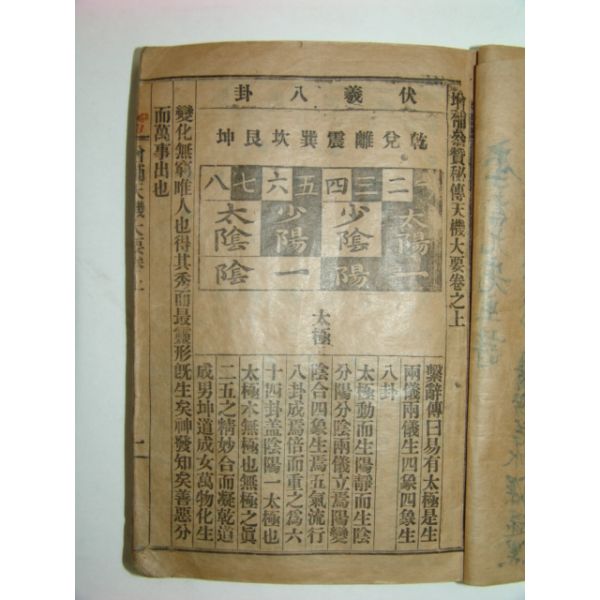 增補參贊秘傳天機大要卷之上
伏羲八卦
乾兌離震巽坎艮坤
一二三四五六七八
太陽 少陰 少陽 太陰
一陽一陰
太極
繫辭傳曰易有太極是生
兩儀兩儀生四象四象生
八卦
太極動而生陽靜而生陰
分陽分陰兩儀立焉陽變
陰合四象生焉五氣流行
八卦成焉倍而重之為六
十四卦盖陰陽一太極也
太極本無極也無極之眞
二五之精妙合而凝乾道
成男坤道成女萬物化生
變化無窮唯人也得其秀而最靈形旣生矣神發知矣善惡分
而萬事出也
增補天機大要卷上
一